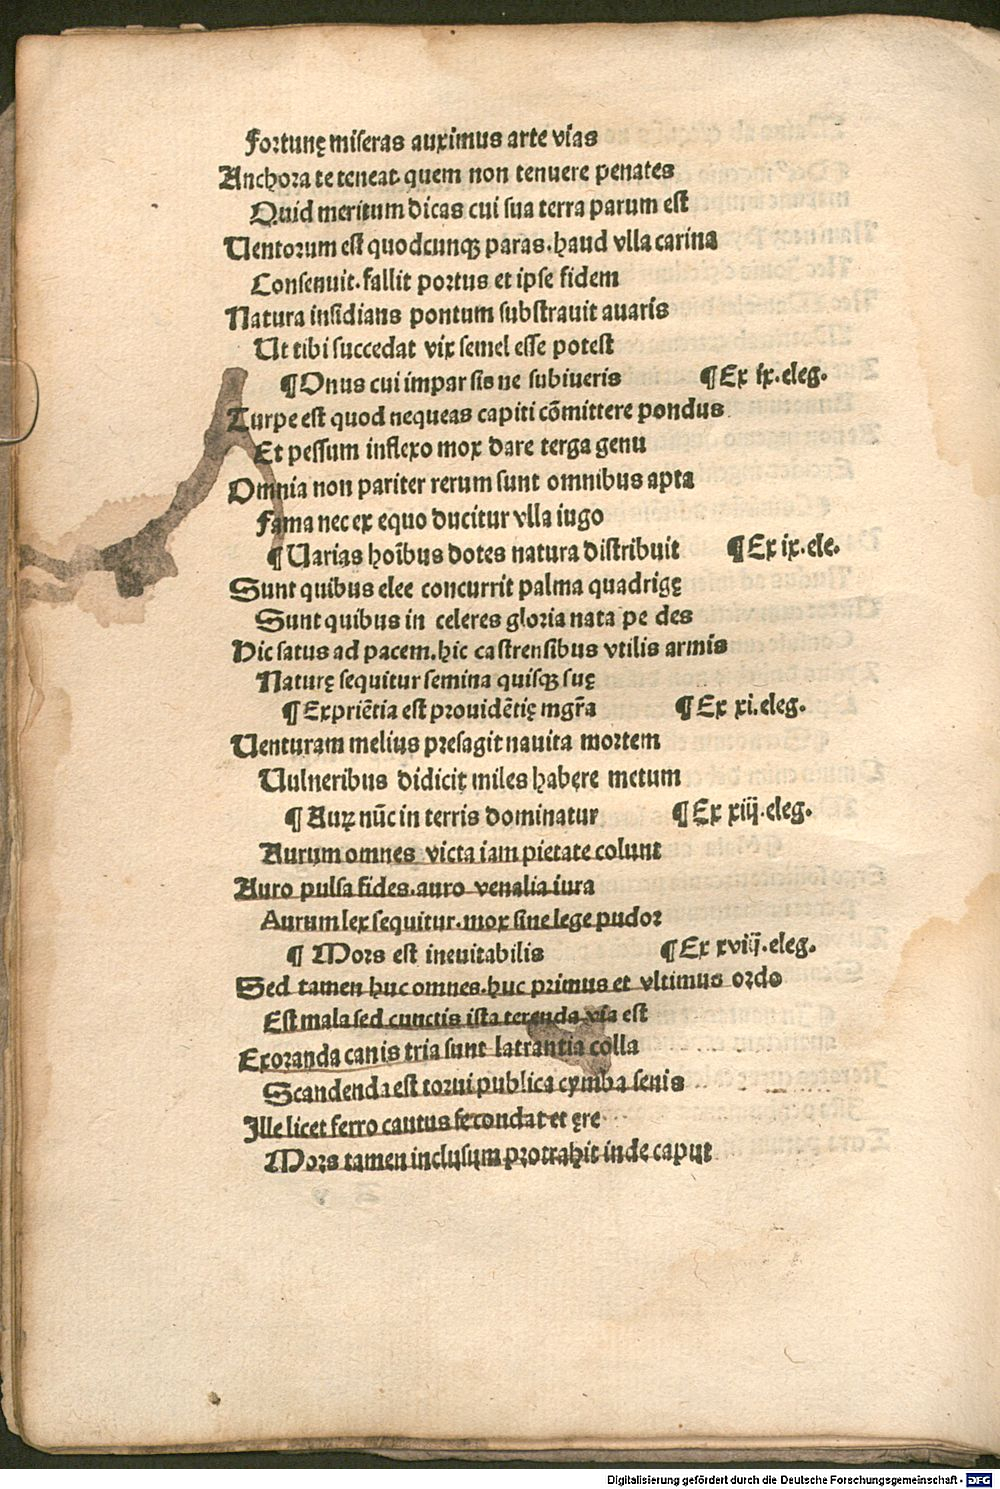 Fortunę miseras auximus arte vias
Anchora te teneat quem non tenuere penates
Quid meritum dicas cui sua terra parum est
Uentorum est quodcunqꝫ paras. haud vlla carina
Consenuit. fallit portus et ipse fidem
Natura insidians pontum substrauit auaris
Ut tibi succedat vix semel esse potest
¶ Onus cui impar sis ne subiueris ¶ Ex ix. eleg.
Turpe est quod nequeas capiti cōmittere pondus
Et pessum inflexo mox dare terga genu
Omnia non pariter rerum sunt omnibus apta
Fama nec ex equo ducitur vlla iugo
¶ Uarias hoībus dotes natura distribuit ¶ Ex ix. ele.
Sunt quibus elee concurrit palma quadrigę
Sunt quibus in celeres gloria nata pe des
Hic satus ad pacem. hic castrensibus vtilis armis
Naturę sequitur semina quisqꝫ suę
¶ Expriētia est prouidētię mgr̄a ¶ Ex xi. eleg.
Uenturam melius presagit nauita mortem
Uulneribus didicit miles habere metum
¶ Auꝝ nūc in terris dominatur ¶ Ex xiij. eleg.
Aurum omnes victa iam pietate colunt
Auro pulsa fides. auro venalia iura
Aurum lex sequitur. mox sine lege pudor
¶ Mors est ineuitabilis ¶ Ex xviij. eleg.
Sed tamen huc omnes. huc primus et vltimus ordo
Est mala sed cunctis ista terenda via est
Exoranda canis tria sunt latrantia colla
Scandenda est torui publica cymba senis
Ille licet ferro cautus se condat et ęre
Mors tamen inclusum protrahit inde caput
Digitalisierung gefördert durch die Deutsche Forschungsgemeinschaft - DFG